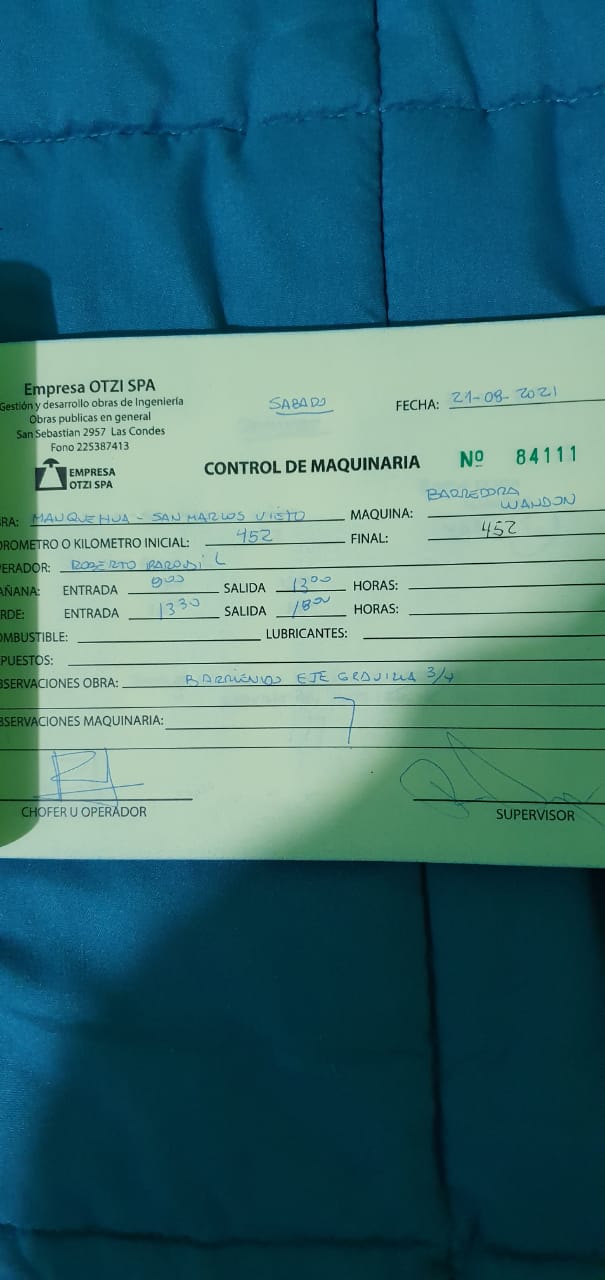 Empresa OTZI SPA
Gestión y desarrollo obras de Ingeniería
Obras publicas en general
San Sebastian 2957 Las Condes
Fono 225387413
EMPRESA
OTZI SPA
SABADO
FECHA: 21-08-2021
CONTROL DE MAQUINARIA Nº 84111
RA: MANQUEHUA - SAN MARCOS VIEJO MAQUINA: BARREDORA WANDON
OROMETRO O KILOMETRO INICIAL: 452 FINAL: 452
ERADOR: ROBERTO PARODI L
AÑANA: ENTRADA 800 SALIDA 1300 HORAS:
RDE: ENTRADA 1330 SALIDA 1800 HORAS:
OMBUSTIBLE: LUBRICANTES:
PUESTOS:
BSERVACIONES OBRA: BARRIENDO EJE GRAVILLA 3/4
BSERVACIONES MAQUINARIA:
CHOFER U OPERADOR
SUPERVISOR